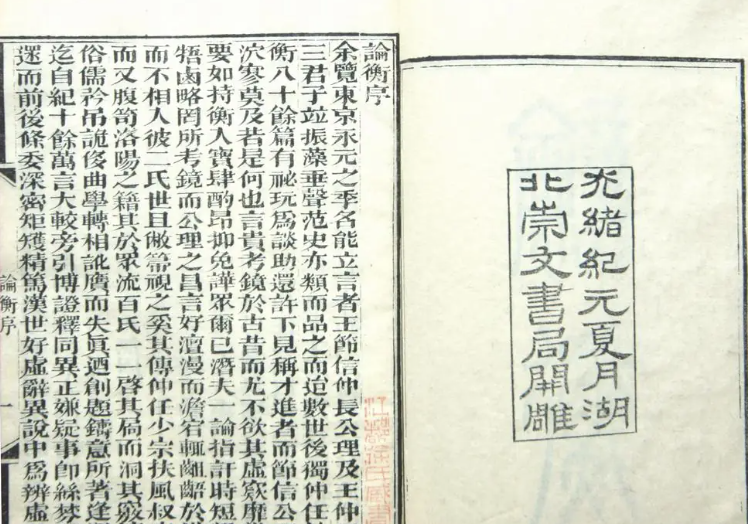 光緒紀元夏月湖
北崇文書局開雕
論衡序
余覽東京永元之季名能立言者王節信仲長公理及王仲
三君子竝振藻垂聲范史亦類而品之而迨數世後獨仲任
衡八十餘篇有祕玩爲談助還許下見稱才進者而節信公
泬寥莫及若是何也言貴考鏡於古昔而尤不欲其虛窾靡
要如持衡人寶肆酌昂抑免譁眾爾已潛夫一論指訐時短
牾鹵略罔所考鏡而公理之昌言好澶漫而澹宕輒齟齬於
而不相人彼二氏世且敝帚視之奚其傳仲任少宗扶風叔
而又腹笥洛陽之籍其於眾流百氏一一啓其扃而洞其竅
俗儒矜吊詭侈曲學轉相訛贗而失眞迺創題鑄意所著逢
迄自紀十餘萬言大較旁引博證釋同異正嫌疑事卽絲棼
遝而前後條委深密矩矱精篤漢世好虛辭異說中爲辨虛
論衡序
一